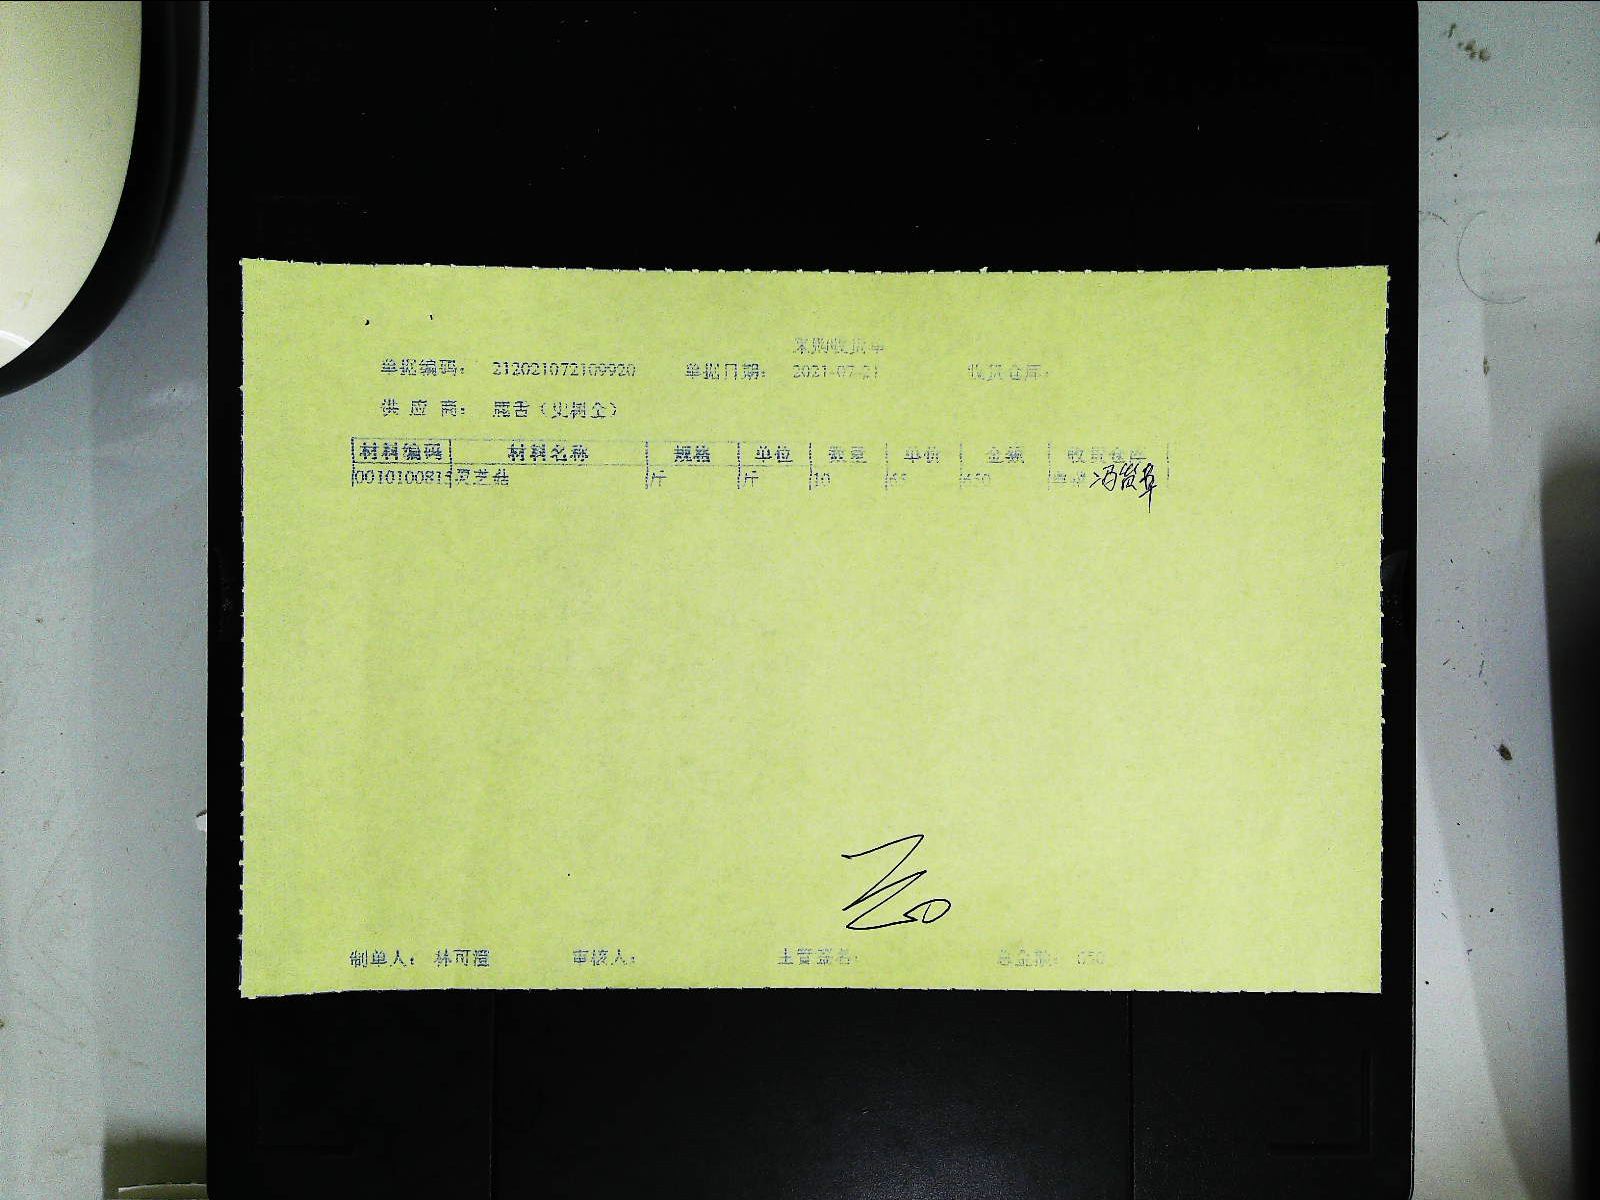 采购收货单
单据编码： 212021072109920 单据日期： 2021-07-21 收货仓库：
供 应 商： 鹿舌（史树仝）
材料编码 材料名称 规格 单位 数量 单价 金额 收货仓库
0010100815 灵芝菇 斤 斤 10 65 650
制单人： 林可澄 审核人： 主管签名： 总金额： 650